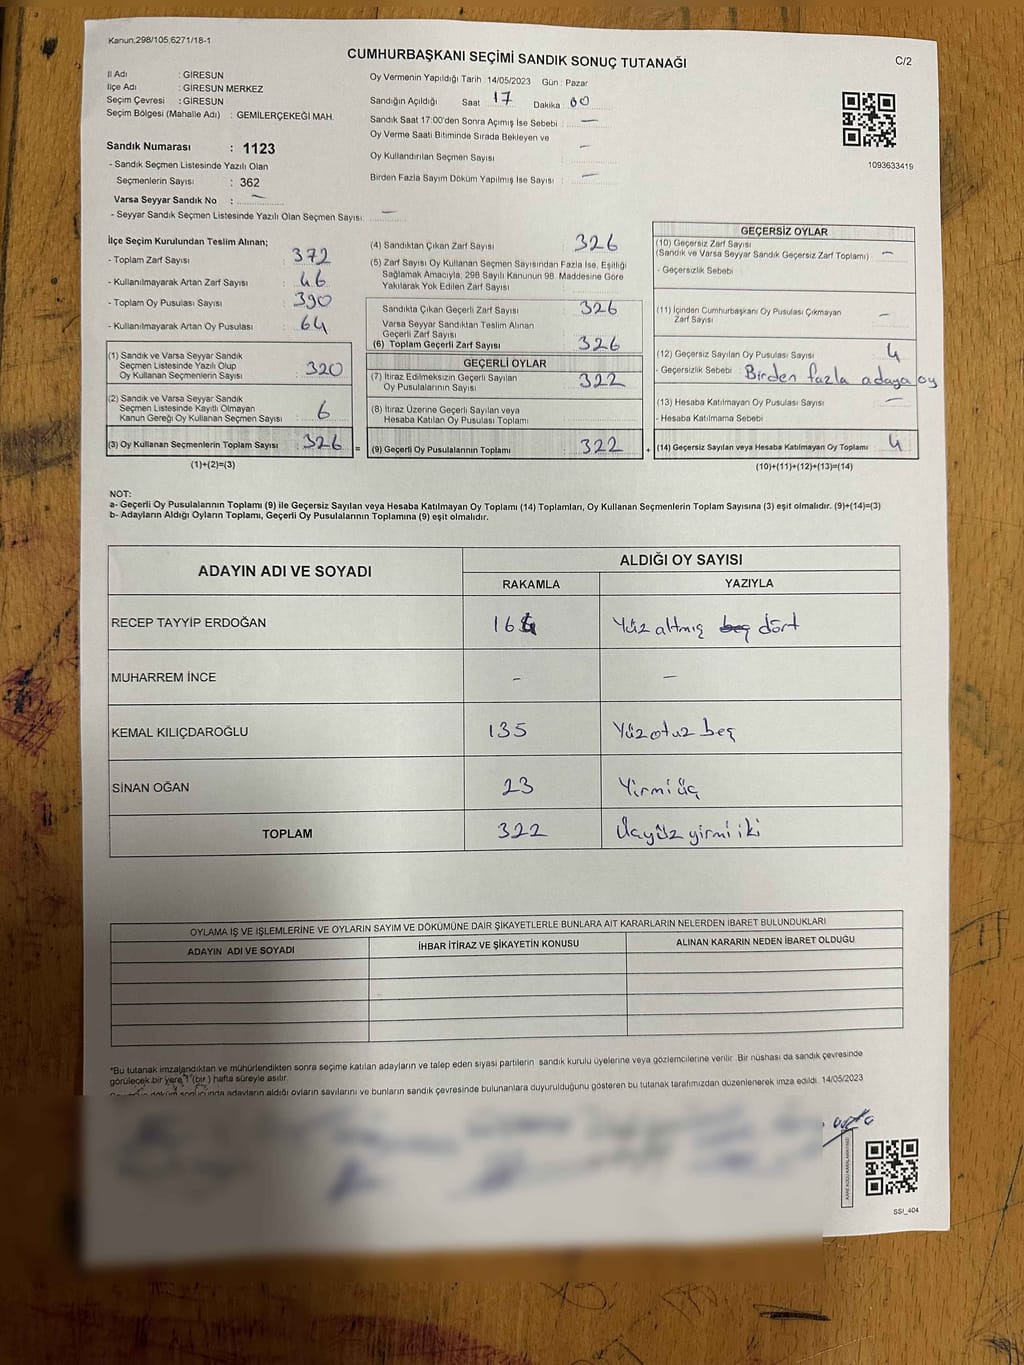 Kanun,298/105,6271/18-1
CUMHURBAŞKANI SEÇİMİ SANDIK SONUÇ TUTANAĞI
C/2
İl Adı : GİRESUN
İlçe Adı : GİRESUN MERKEZ
Seçim Çevresi : GİRESUN
Seçim Bölgesi (Mahalle Adı) : GEMİLERÇEKEĞİ MAH.
Sandık Numarası : 1123
- Sandık Seçmen Listesinde Yazılı Olan
Seçmenlerin Sayısı : 362
Varsa Seyyar Sandık No : —
- Seyyar Sandık Seçmen Listesinde Yazılı Olan Seçmen Sayısı: —
Oy Vermenin Yapıldığı Tarih :14/05/2023 Gün : Pazar
Sandığın Açıldığı Saat 17 Dakika 00
Sandık Saat 17:00'den Sonra Açımış İse Sebebi : —
Oy Verme Saati Bitiminde Sırada Bekleyen ve
Oy Kullandırılan Seçmen Sayısı —
Birden Fazla Sayım Döküm Yapılmış İse Sayısı : —
1093633419
İlçe Seçim Kurulundan Teslim Alınan;
- Toplam Zarf Sayısı : 372
- Kullanılmayarak Artan Zarf Sayısı : 46
- Toplam Oy Pusulası Sayısı : 390
- Kullanılmayarak Artan Oy Pusulası : 64
(1) Sandık ve Varsa Seyyar Sandık
Seçmen Listesinde Yazılı Olup
Oy Kullanan Seçmenlerin Sayısı : 320
(2) Sandık ve Varsa Seyyar Sandık
Seçmen Listesinde Kayıtlı Olmayan
Kanun Gereği Oy Kullanan Seçmen Sayısı : 6
(3) Oy Kullanan Seçmenlerin Toplam Sayısı : 326 =
(1)+(2)=(3)
(4) Sandıktan Çıkan Zarf Sayısı : 326
(5) Zarf Sayısı Oy Kullanan Seçmen Sayısından Fazla İse, Eşitliği
Sağlamak Amacıyla; 298 Sayılı Kanunun 98. Maddesine Göre
Yakılarak Yok Edilen Zarf Sayısı :
Sandıkta Çıkan Geçerli Zarf Sayısı : 326
Varsa Seyyar Sandıktan Teslim Alınan
Geçerli Zarf Sayısı :
(6) Toplam Geçerli Zarf Sayısı : 326
GEÇERLİ OYLAR
(7) İtiraz Edilmeksizin Geçerli Sayılan
Oy Pusulalarının Sayısı : 322
(8) İtiraz Üzerine Geçerli Sayılan veya
Hesaba Katılan Oy Pusulası Toplamı :
(9) Geçerli Oy Pusulalarının Toplamı : 322 +
GEÇERSİZ OYLAR
(10) Geçersiz Zarf Sayısı
(Sandık ve Varsa Seyyar Sandık Geçersiz Zarf Toplamı) : —
- Geçersizlik Sebebi
(11) İçinden Cumhurbaşkanı Oy Pusulası Çıkmayan
Zarf Sayısı : —
(12) Geçersiz Sayılan Oy Pusulası Sayısı : 4
- Geçersizlik Sebebi : Birden fazla adaya oy
(13) Hesaba Katılmayan Oy Pusulası Sayısı : —
- Hesaba Katılmama Sebebi
(14) Geçersiz Sayılan veya Hesaba Katılmayan Oy Toplamı : 4
(10)+(11)+(12)+(13)=(14)
NOT:
a- Geçerli Oy Pusulalarının Toplamı (9) ile Geçersiz Sayılan veya Hesaba Katılmayan Oy Toplamı (14) Toplamları, Oy Kullanan Seçmenlerin Toplam Sayısına (3) eşit olmalıdır. (9)+(14)=(3)
b- Adayların Aldığı Oyların Toplamı, Geçerli Oy Pusulalarının Toplamına (9) eşit olmalıdır.
ADAYIN ADI VE SOYADI
ALDIĞI OY SAYISI
RAKAMLA YAZIYLA
RECEP TAYYİP ERDOĞAN 164 Yüz altmış beş dört
MUHARREM İNCE - —
KEMAL KILIÇDAROĞLU 135 Yüzotuz beş
SİNAN OĞAN 23 Yirmi üç
TOPLAM 322 Üçyüz yirmi iki
OYLAMA İŞ VE İŞLEMLERİNE VE OYLARIN SAYIM VE DÖKÜMÜNE DAİR ŞİKAYETLERLE BUNLARA AİT KARARLARIN NELERDEN İBARET BULUNDUKLARI
ADAYIN ADI VE SOYADI İHBAR İTİRAZ VE ŞİKAYETİN KONUSU ALINAN KARARIN NEDEN İBARET OLDUĞU
*Bu tutanak imzalandıktan ve mühürlendikten sonra seçime katılan adayların ve talep eden siyasi partilerin sandık kurulu üyelerine veya gözlemcilerine verilir. Bir nüshası da sandık çevresinde
görülecek bir yere 1 (bir) hafta süreyle asılır.
adayların aldığı oyların sayılarını ve bunların sandık çevresinde bulunanlara duyurulduğunu gösteren bu tutanak tarafımızdan düzenlenerek imza edildi. 14/05/2023
SSİ_404